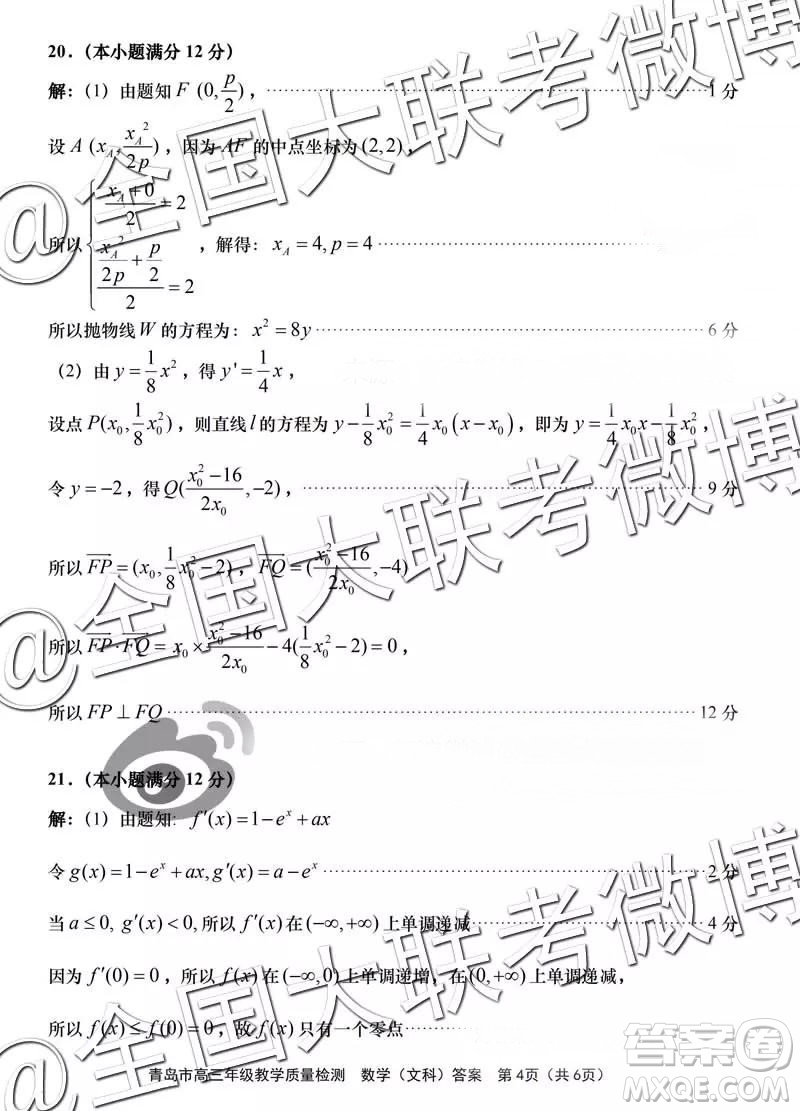 20.（本小题满分 12 分）
解：（1）由题知 F (0, p/2)，………1 分
设 A (x_A, x_A²/2p)，因为 AF 的中点坐标为 (2,2)，
所以 { (x_A+0)/2 = 2, (x_A²/2p + p/2)/2 = 2，解得：x_A = 4, p = 4 ………
所以抛物线 W 的方程为：x² = 8y ………6 分
（2）由 y = 1/8 x²，得 y' = 1/4 x，
设点 P(x₀, 1/8 x₀²)，则直线 l 的方程为 y − 1/8 x₀² = 1/4 x₀ (x − x₀)，即为 y = 1/4 x₀x − 1/8 x₀²，
令 y = −2，得 Q((x₀²−16)/2x₀, −2)，………9 分
所以 FP→ = (x₀, 1/8 x₀² − 2)，FQ→ = ((x₀²−16)/2x₀, −4)
所以 FP→·FQ→ = x₀ × (x₀²−16)/2x₀ − 4(1/8 x₀² − 2) = 0，
所以 FP ⊥ FQ ………12 分
21.（本小题满分 12 分）
解：（1）由题知: f′(x) = 1 − eˣ + ax
令 g(x) = 1 − eˣ + ax, g′(x) = a − eˣ ………2 分
当 a ≤ 0, g′(x) < 0, 所以 f′(x) 在 (−∞,+∞) 上单调递减 ………4 分
因为 f′(0) = 0，所以 f(x) 在 (−∞,0) 上单调递增，在 (0,+∞) 上单调递减，
所以 f(x) ≤ f(0) = 0，故 f(x) 只有一个零点 ………
青岛市高三年级教学质量检测 数学（文科）答案 第 4页（共 6页）
@全国大联考微博
@全国大联考微博
@全国大联考微博
答案卷
MXQE.COM